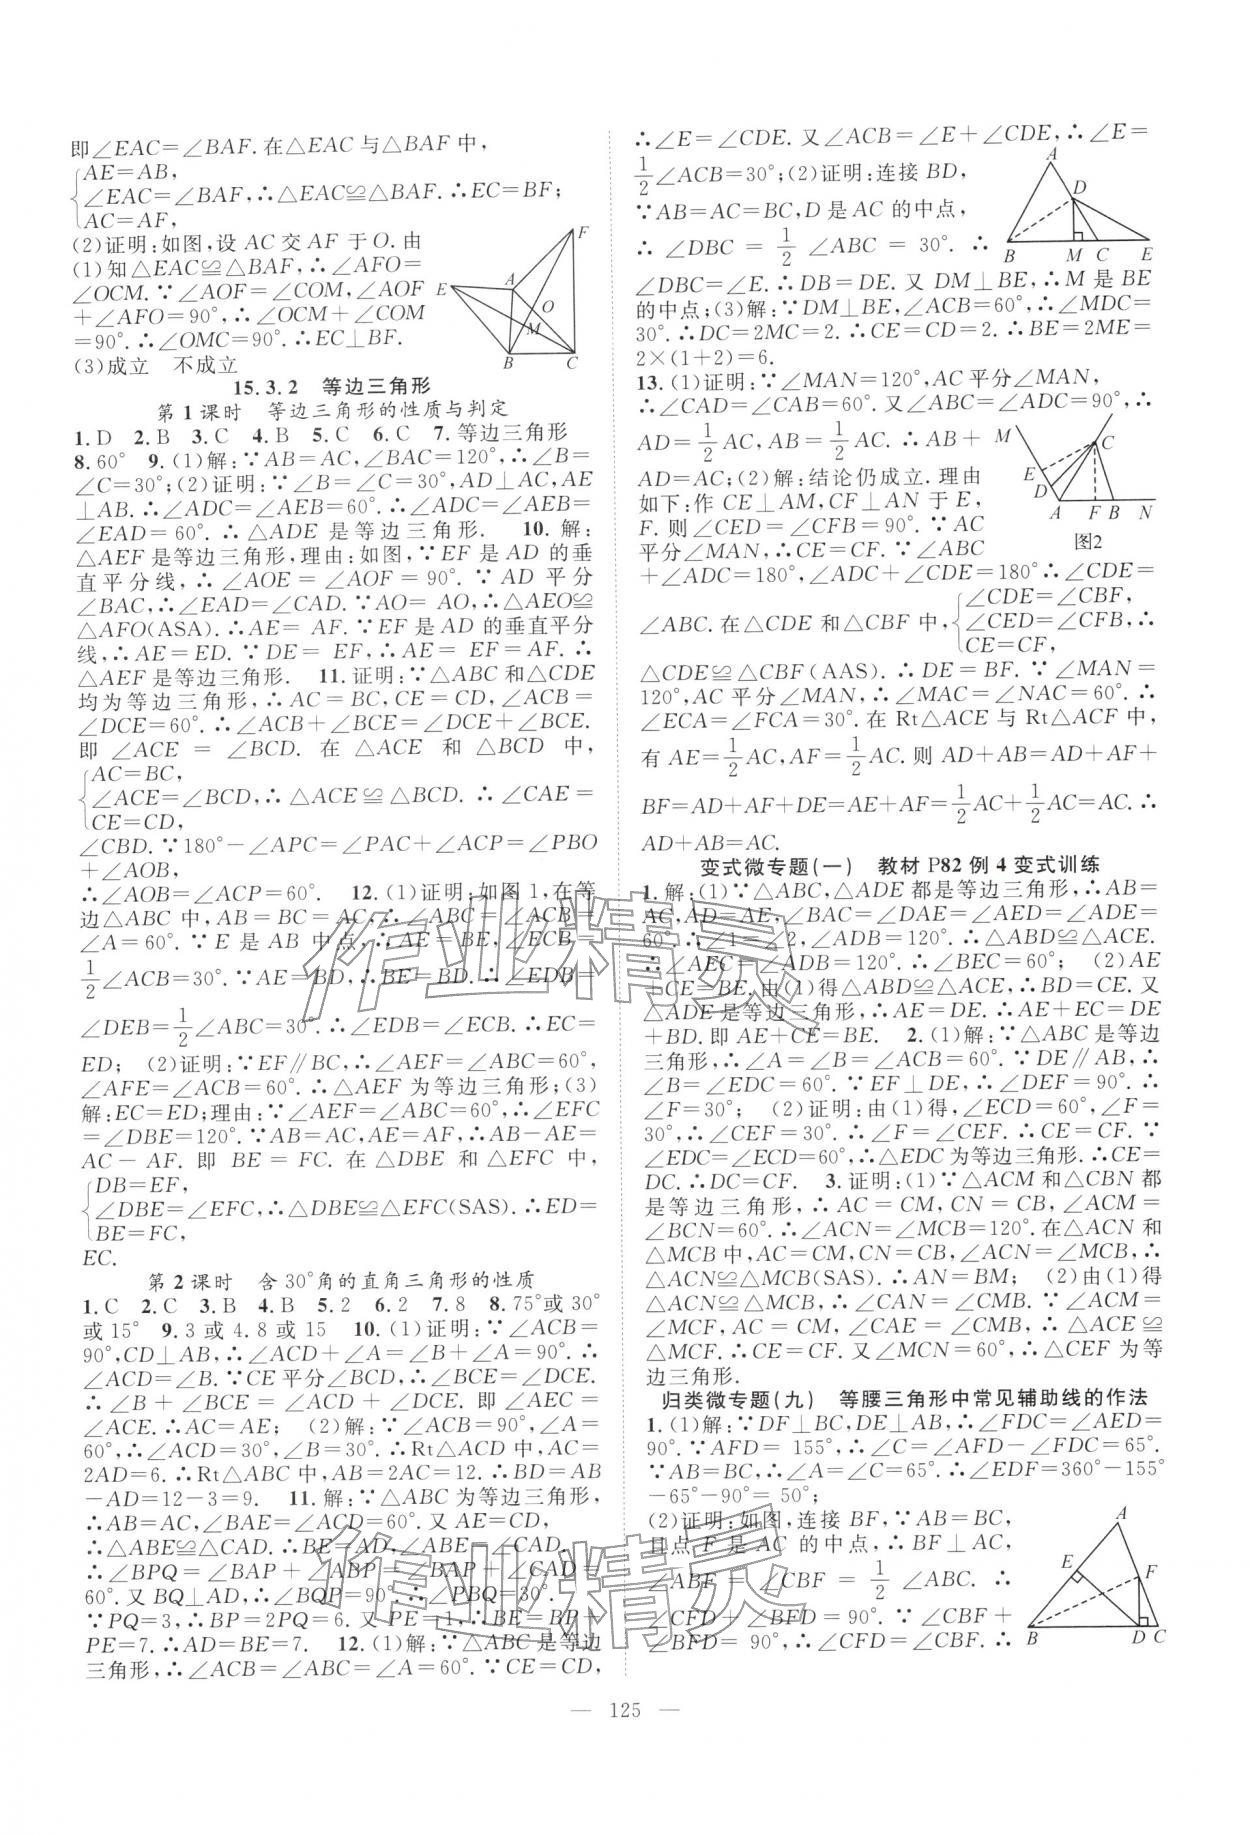 即∠EAC=∠BAF.在△EAC与△BAF中,
AE=AB,
∠EAC=∠BAF,∴△EAC≌△BAF.∴EC=BF;
AC=AF,
(2)证明:如图,设AC交AF于O.由
(1)知△EAC≌△BAF,∴∠AFO=
∠OCM.∵∠AOF=∠COM,∠AOF
+∠AFO=90°,∴∠OCM+∠COM
=90°.∴∠OMC=90°.∴EC⊥BF.
(3)成立 不成立
F
E
A
O
M
B
C
15.3.2 等边三角形
第1课时 等边三角形的性质与判定
1.D 2.B 3.C 4.B 5.C 6.C 7.等边三角形
8.60° 9.(1)解:∵AB=AC,∠BAC=120°,∴∠B=
∠C=30°;(2)证明:∵∠B=∠C=30°,AD⊥AC,AE
⊥AB.∴∠ADC=∠AEB=60°.∴∠ADC=∠AEB=
∠EAD=60°.∴△ADE是等边三角形. 10.解:
△AEF是等边三角形,理由:如图,∵EF是AD的垂
直平分线,∴∠AOE=∠AOF=90°.∵AD平分
∠BAC,∴∠EAD=∠CAD.∵AO=AO,∴△AEO≌
△AFO(ASA).∴AE=AF.∵EF是AD的垂直平分
线,∴AE=ED.∵DE=EF,∴AE=EF=AF.∴
△AEF是等边三角形. 11.证明:∵△ABC和△CDE
均为等边三角形,∴AC=BC,CE=CD,∠ACB=
∠DCE=60°.∴∠ACB+∠BCE=∠DCE+∠BCE.
即∠ACE=∠BCD.在△ACE和△BCD中,
AC=BC,
∠ACE=∠BCD,∴△ACE≌△BCD.∴∠CAE=
CE=CD,
∠CBD.∵180°-∠APC=∠PAC+∠ACP=∠PBO
+∠AOB,
∴∠AOB=∠ACP=60°. 12.(1)证明:如图1,在等
边△ABC中,AB=BC=AC,∴∠ABC=∠ACB=
∠A=60°.∵E是AB中点,∴AE=BE,∠ECB=
1/2∠ACB=30°.∵AE=BD,∴BE=BD.∴∠EDB=
∠DEB=1/2∠ABC=30°.∴∠EDB=∠ECB.∴EC=
ED; (2)证明:∵EF∥BC,∴∠AEF=∠ABC=60°,
∠AFE=∠ACB=60°.∴△AEF为等边三角形;(3)
解:EC=ED;理由:∵∠AEF=∠ABC=60°,∴∠EFC
=∠DBE=120°.∵AB=AC,AE=AF,∴AB-AE=
AC-AF.即BE=FC.在△DBE和△EFC中,
DB=EF,
∠DBE=∠EFC,∴△DBE≌△EFC(SAS).∴ED=
BE=FC,
EC.
第2课时 含30°角的直角三角形的性质
1.C 2.C 3.B 4.B 5.2 6.2 7.8 8.75°或30°
或15° 9.3或4.8或15 10.(1)证明:∵∠ACB=
90°,CD⊥AB,∴∠ACD+∠A=∠B+∠A=90°.∴
∠ACD=∠B.∵CE平分∠BCD,∴∠BCE=∠DCE.
∴∠B+∠BCE=∠ACD+∠DCE.即∠AEC=
∠ACE.∴AC=AE; (2)解:∵∠ACB=90°,∠A=
60°,∴∠ACD=30°,∠B=30°.∴Rt△ACD中,AC=
2AD=6.∴Rt△ABC中,AB=2AC=12.∴BD=AB
-AD=12-3=9. 11.解:∵△ABC为等边三角形,
∴AB=AC,∠BAE=∠ACD=60°.又AE=CD,
∴△ABE≌△CAD.∴BE=AD,∠ABE=∠CAD.
∴∠BPQ=∠BAP+∠ABP=∠BAP+∠CAD=
60°.又BQ⊥AD,∴∠BQP=90°.∴∠PBQ=30°.
∵PQ=3,∴BP=2PQ=6.又PE=1,∴BE=BP+
PE=7.∴AD=BE=7. 12.(1)解:∵△ABC是等边
三角形,∴∠ACB=∠ABC=∠A=60°.∵CE=CD,
∴∠E=∠CDE.又∠ACB=∠E+∠CDE,∴∠E=
1/2∠ACB=30°;(2)证明:连接BD,
∵AB=AC=BC,D是AC的中点,
∴∠DBC=1/2∠ABC=30°.∴
∠DBC=∠E.∴DB=DE.又DM⊥BE,∴M是BE
的中点;(3)解:∵DM⊥BE,∠ACB=60°,∴∠MDC=
30°.∴DC=2MC=2.∴CE=CD=2.∴BE=2ME=
2×(1+2)=6.
A
D
B
M
C
E
13.(1)证明:∵∠MAN=120°,AC平分∠MAN,
∴∠CAD=∠CAB=60°.又∠ABC=∠ADC=90°,∴
AD=1/2AC,AB=1/2AC.∴AB+
AD=AC;(2)解:结论仍成立.理由
如下:作CE⊥AM,CF⊥AN于E,
F.则∠CED=∠CFB=90°.∵AC
平分∠MAN,∴CE=CF.∵∠ABC
+∠ADC=180°,∠ADC+∠CDE=180°∴∠CDE=
∠CDE=∠CBF,
∠ABC.在△CDE和△CBF中,∠CED=∠CFB,∴
CE=CF,
△CDE≌△CBF(AAS).∴DE=BF.∵∠MAN=
120°,AC平分∠MAN,∴∠MAC=∠NAC=60°.∴
∠ECA=∠FCA=30°.在Rt△ACE与Rt△ACF中,
有AE=1/2AC,AF=1/2AC.则AD+AB=AD+AF+
BF=AD+AF+DE=AE+AF=1/2AC+1/2AC=AC.∴
AD+AB=AC.
M
C
E
D
A
F
B
N
图2
变式微专题(一) 教材P82例4变式训练
1.解:(1)∵△ABC,△ADE都是等边三角形,∴AB=
AC,AD=AE,∠BAC=∠DAE=∠AED=∠ADE=
60°.∴∠1=∠2,∠ADB=120°.∴△ABD≌△ACE.
∴∠AEC=∠ADB=120°.∴∠BEC=60°; (2)AE
+CE=BE.由(1)得△ABD≌△ACE,∴BD=CE.又
△ADE是等边三角形,∴AE=DE.∴AE+EC=DE
+BD.即AE+CE=BE. 2.(1)解:∵△ABC是等边
三角形,∴∠A=∠B=∠ACB=60°.∵DE∥AB,∴
∠B=∠EDC=60°.∵EF⊥DE,∴∠DEF=90°.∴
∠F=30°; (2)证明:由(1)得,∠ECD=60°,∠F=
30°,∴∠CEF=30°.∴∠F=∠CEF.∴CE=CF.∵
∠EDC=∠ECD=60°,∴△EDC为等边三角形.∴CE=
DC.∴DC=CF. 3.证明:(1)∵△ACM和△CBN都
是等边三角形,∴AC=CM,CN=CB,∠ACM=
∠BCN=60°.∴∠ACN=∠MCB=120°.在△ACN和
△MCB中,AC=CM,CN=CB,∠ACN=∠MCB,∴
△ACN≌△MCB(SAS).∴AN=BM; (2)由(1)得
△ACN≌△MCB,∴∠CAN=∠CMB.∵∠ACM=
∠MCF,AC=CM,∠CAE=∠CMF,∴△ACE≌
△MCF.∴CE=CF.又∠MCN=60°,∴△CEF为等
边三角形.
归类微专题(九) 等腰三角形中常见辅助线的作法
1.(1)解:∵DF⊥BC,DE⊥AB,∴∠FDC=∠AED=
90°.∵∠AFD=155°,∴∠C=∠AFD-∠FDC=65°.
∵AB=BC,∴∠A=∠C=65°.∴∠EDF=360°-155°
-65°-90°=50°;
(2)证明:如图,连接BF,∵AB=BC,
且点F是AC的中点,∴BF⊥AC,
∠ABF=∠CBF=1/2∠ABC.∴
∠CFD+∠BFD=90°.∵∠CBF+
∠BFD=90°,∴∠CFD=∠CBF.∴
A
E
F
B
D
C
— 125 —
作业精灵
作业精灵